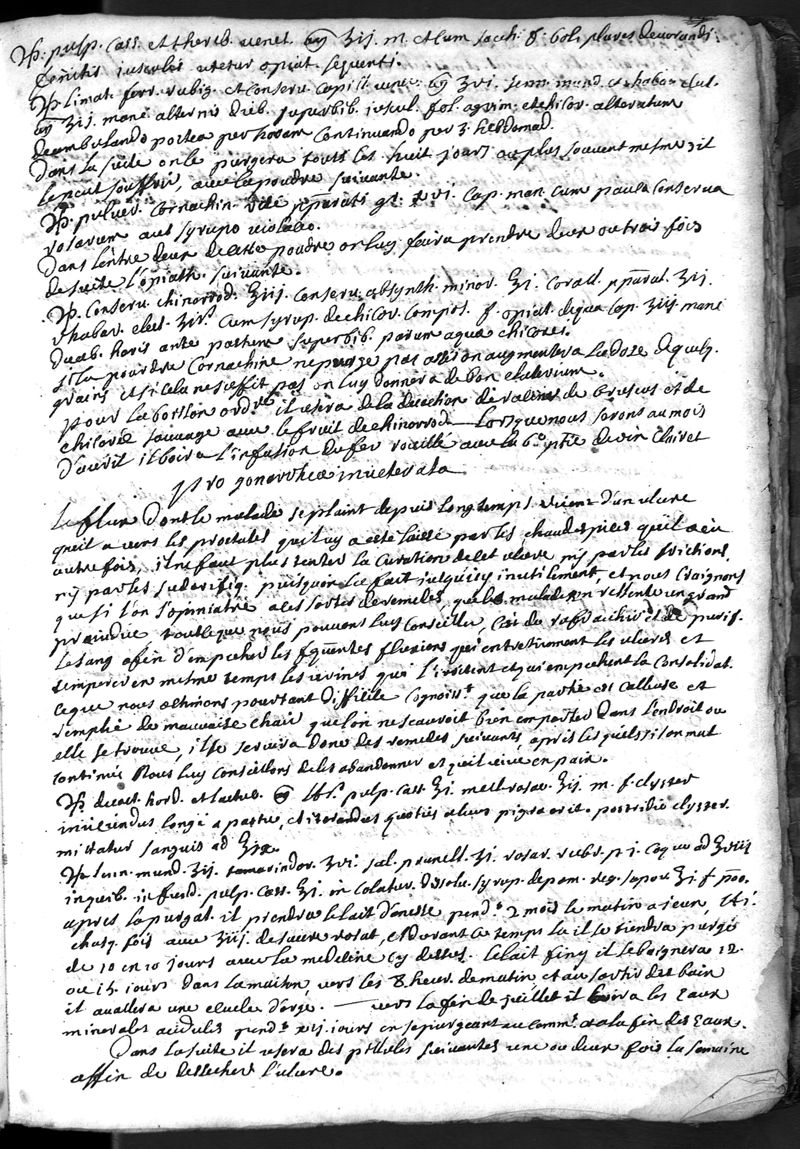 ℞. pulp. Cass. et thereb. venet. añ ʒij. m. et cum sacch. f. boli plures devorandi.
finitis iusculis utetur opiat. sequenti.
℞ limat. ferr. rubig. et Conserv. capill. vener. añ ʒvi. senn. mund. et rhabar. elect.
añ ʒij. mane alternis dieb. superbib. iuscul. fol. agrim. et chicor. alteratum
deambulando postea per horam Continuando per 3. hebdomad.
Dans la suite on le purgera touts les huit jours ou plus souvent mesme s'il
le peut souffrir, avec la poudre suivante.
℞. pulver. Cornachin. rite pp̄arati gr. xvi. Cap. man. cum pauca Conserva
rosarum aut syrupo violaceo.
Dans l'entre deux de cette poudre on luy faira prendre deux ou trois fois
de suite l'opiath. suivante.
℞. Conserv. chinorrod. ʒiij. Conserv. absynth. minor. ʒi. Corall. pp̄arat. ʒij.
rhabar. elect. ʒivs. Cum syrup. de chicor. compos. f. opiat. de qua Cap. ʒiij mane
duab. horis ante pastum superbib. parum aquæ chicorei.
si la poudre Cornachine ne purge pas assés on augmentera la doze de quelq.
grains et si cela ne suffit pas on luy donnera de bon elaterium.
pour la boisson ordre. il usera de la decoction de racines de bruscus et de
chicorée sauvage avec le fruit de chinorrod — Lorsque nous serons au mois
d'avril il boira l'infusion du fer rouillé avec la 6e. ptie de vin Clairet
pro gonorrhœa inveterata
Le flux dont le malade se plaint depuis long temps vient d'un ulcere
qu'il a vers les prostates qui luy a esté laissé par les chaudepisses qu'il a eu
autre fois, il ne faut plus tenter la Curation de cet ulcere ny par les frictions,
ny par les sudorifiq. puisqu'on l'a fait jusqu'icy inutilement, et nous craignons
que si l'on s'opiniatre a ces sortes de remedes, que le malade n'en ressente un grand
prejudice tout ce que nous pouvons luy Conseiller, c'est de rafraichir et de purif.
le sang afin d'empecher les frequentes fluxions qui entretiennent les ulceres et
temperer en mesme temps les urines qui l'irritent et qui empechent la Consolidat.
ce que nous estimons pourtant difficile Cognoiss.t que la partie est calleuse et
remplie de mauvaise chair que l'on ne scauroit bien emporter dans l'endroit ou
elle se trouve, il se servira donc des remedes suivants, apres lesquels si son mal
continue Nous luy Conseillons de les abandonner et qu'il vive en paix.
℞ decoct. hord. et lactuc. ℔s. pulp. cass. ʒi. mell. rosar. ʒij. m. f. clyster
iniiciendus longe a pastu, et iterandus quoties alvus pigra erit. postridie clyster.
mittatur sanguis ad ʒix.
℞ senn. mund. ʒij. tamarindor. ʒvi. sal. prunell. ʒi. rosar. rubr. p. i. Coque ad ʒviij
in quib. infund. pulp. Cass. ʒi. in colatur. dissolv. syrup. de pom. reg. sapor. ʒi. f. p̄oo.
apres la purgat. il prendra le lait d'anesse pend.t 2 mois le matin a jeun,
chasq. fois avec ʒiij. de sucre rosat, et durant ce temps la il se tiendra purgé
de 10 en 10 jours avec la medecine cy dessus. le lait finy il se baignera 12
ou 15. jours dans la maison, vers les 8 heur. de matin et au sortir du bain
il avallera une ecuelle d'orge. — vers la fin de juillet il boira les Eaux
minerales acidules pend.t xij. jours en se purgeant au comm.t et a la fin des Eaux.
Dans la suite il usera des pillules suivantes une ou deux fois la semaine
affin de dessecher l'ulcere.